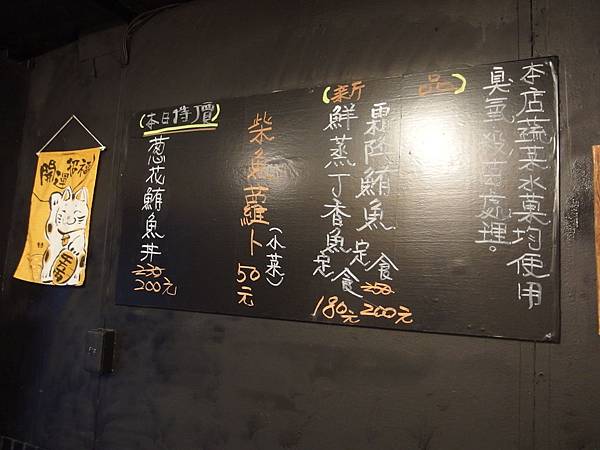 本店蔬菜水菓均使用
臭氧殺菌處理。
(新品)
霜降鮪魚定食 250 200元
鮮蒸丁香魚定食 180元
柴魚蘿卜(小菜) 50元
(本日特價)
蔥花鮪魚丼 230 200元
開運招福